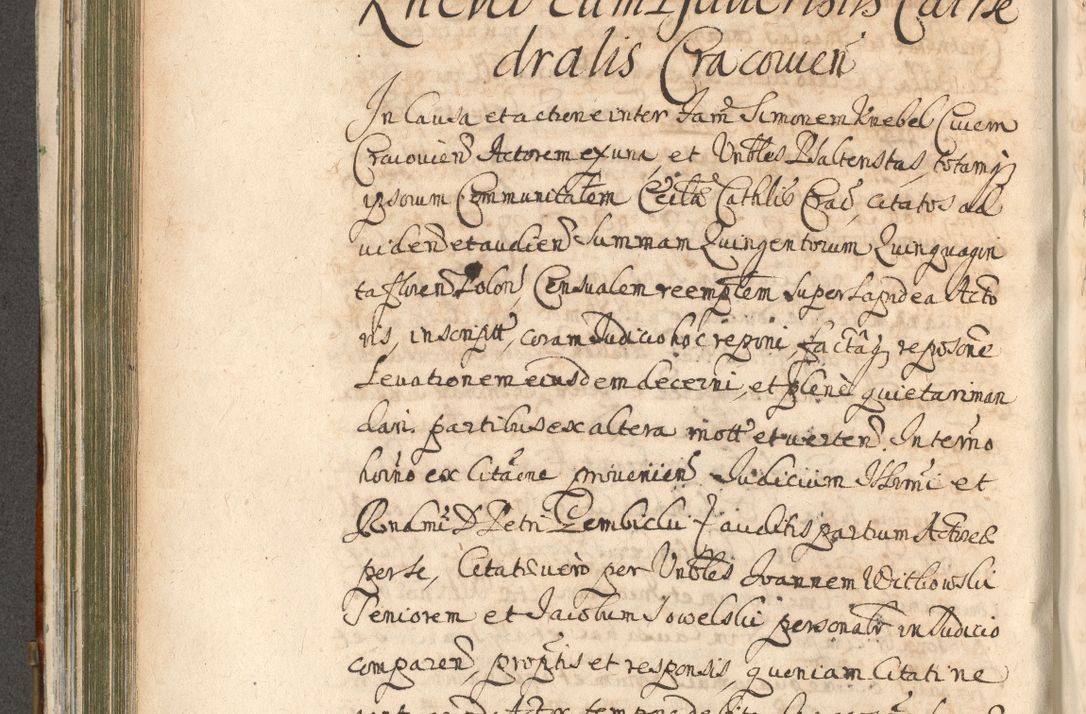 Knebel cum Psalteristis Cathe
dralis Cracovien
In Causa et actione inter Fam. Simonem Knebel Civem
Cracovien Actorem ex una, et Vnbles Psalteristas, totamq
ipsorum Communitatem Ecclae Cathlis Crac, citatos ad
viden et audien Summam Quingentorum Quinquagin
ta floren Polon, Censualem reemptlem super Lapidea Acto
ris, inscriptt, coram Judicio hoc reponi, factaq reposone
Levationem eiusdem decerni, et plene quietari man
dari. partibus ex altera mott et verten. In termo
horno ex Citaone provenien. Judicium Illrmi et
Rndmi D Petri Gembicki auditis partium Actore
per se, Citatis vero per Vnbles Joannem Witkowski
Seniorem et Jacobum Sowelski personalr in Judicio
comparen, proptis et responsis, quoniam Citati ne